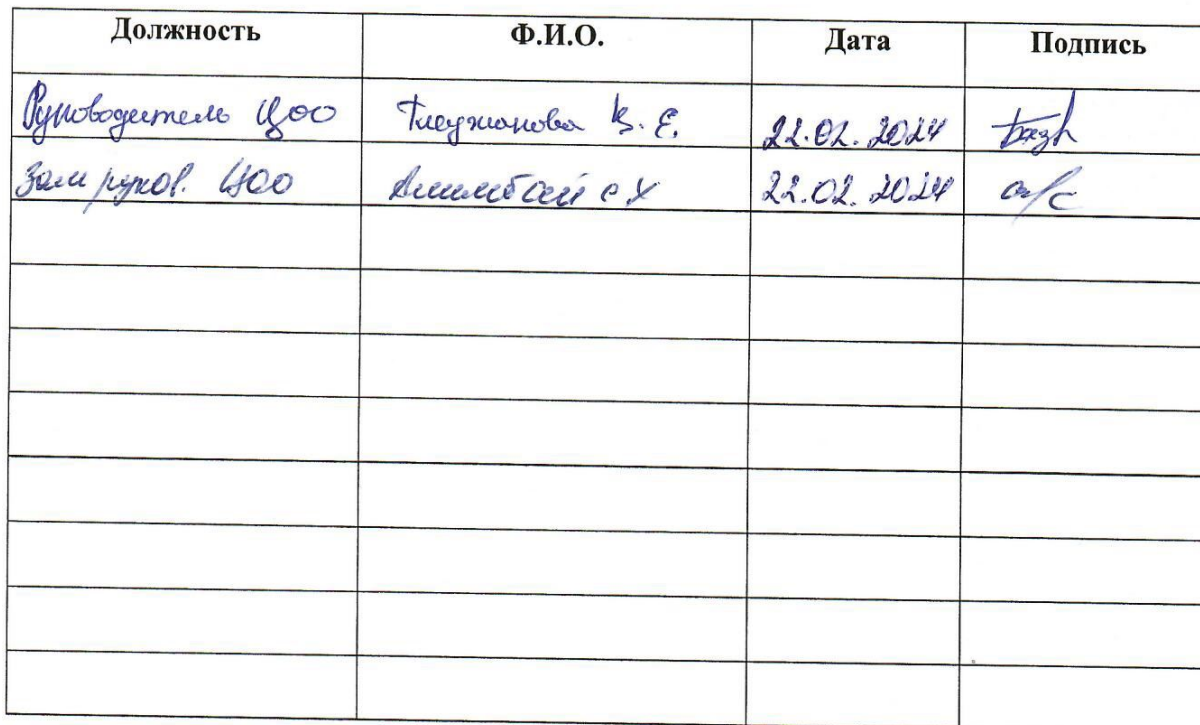 Должность Ф.И.О. Дата Подпись
Руководитель ЦОО Тлеужанова Б. Е. 22.02.2024
Зам руков. ЦОО Алимбай с Х 22.02.2024